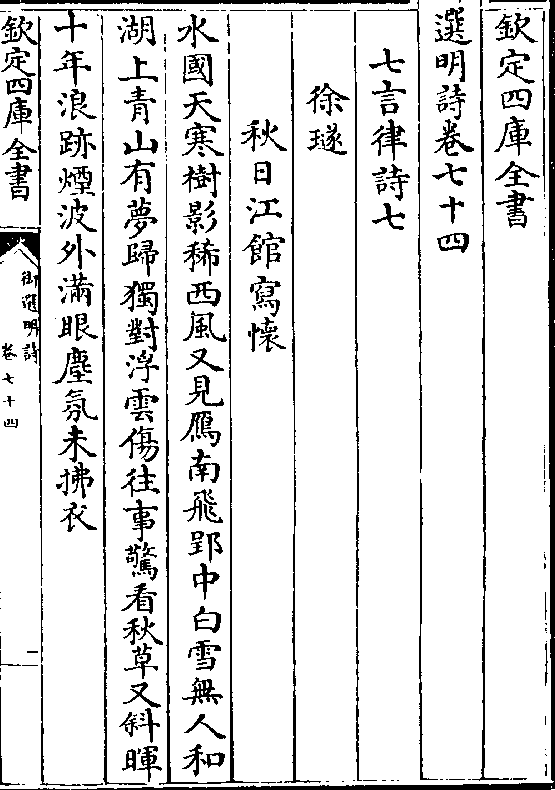 欽定四庫全書
選明詩卷七十四
七言律詩七
徐璲
秋日江館寫懷
水國天寒樹影稀西風又見鴈南飛郢中白雪無人和
湖上青山有夢歸獨對浮雲傷往事驚看秋草又斜暉
十年浪跡煙波外滿眼塵氛未拂衣
欽定四庫全書
御選明詩
卷七十四
一